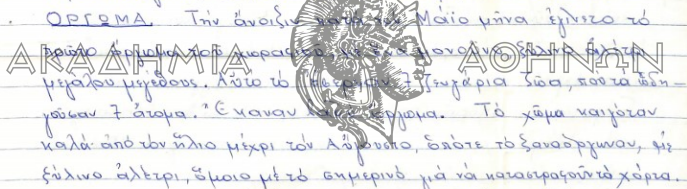 ΟΡΓΩΜΑ. Τήν ἄνοιξιν κατά τόν Μάϊο μῆνα ἐγίνετο τό
πρῶτο ὄργωμα τοῦ χωραφιοῦ, μέ ἕνα μονοῦνι ξύλινο ἀλέτρι
ΑΚΑΔΗΜΙΑ ΑΘΗΝΩΝ
μεγάλου μεγέθους. Αὐτό τό ἔσερναν 7 ζευγάρια ζῶα, πού τά ὡδη-
γοῦσαν 7 ἄτομα. Ἔκαναν καλό ὄργωμα. Τό χῶμα καιγόταν
καλά ἀπό τόν ἥλιο μέχρι τόν Αὔγουστο, ὁπότε τό ξαναόργωναν, μέ
ξύλινο ἀλέτρι, ὅμοιο μέ τό σημερινό γιά νά καταστραφοῦν τά χόρτα.